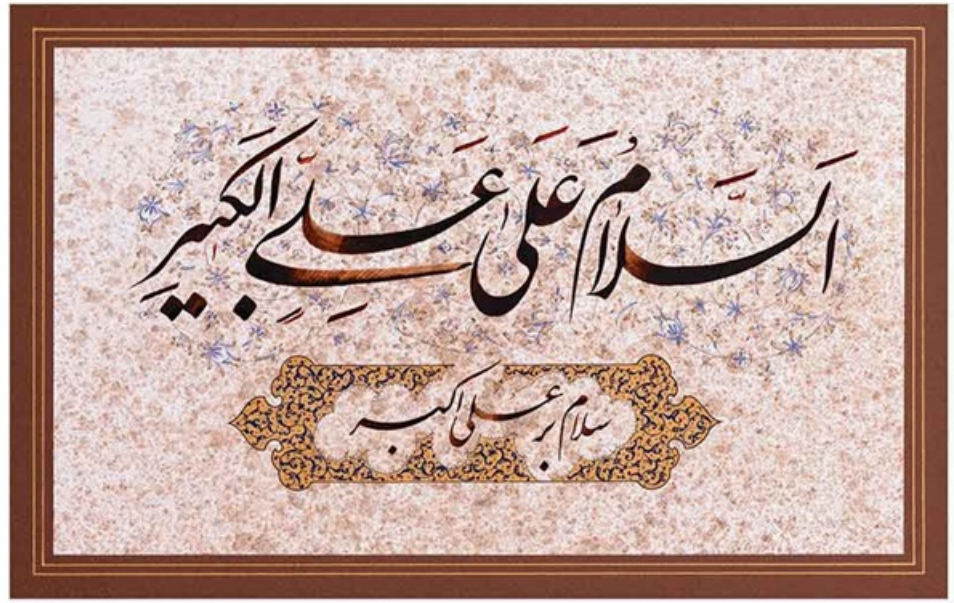 اَلسَّلامُ عَلَی عَلِیٍّ الکَبیرِ
سلام بر علی اکبر